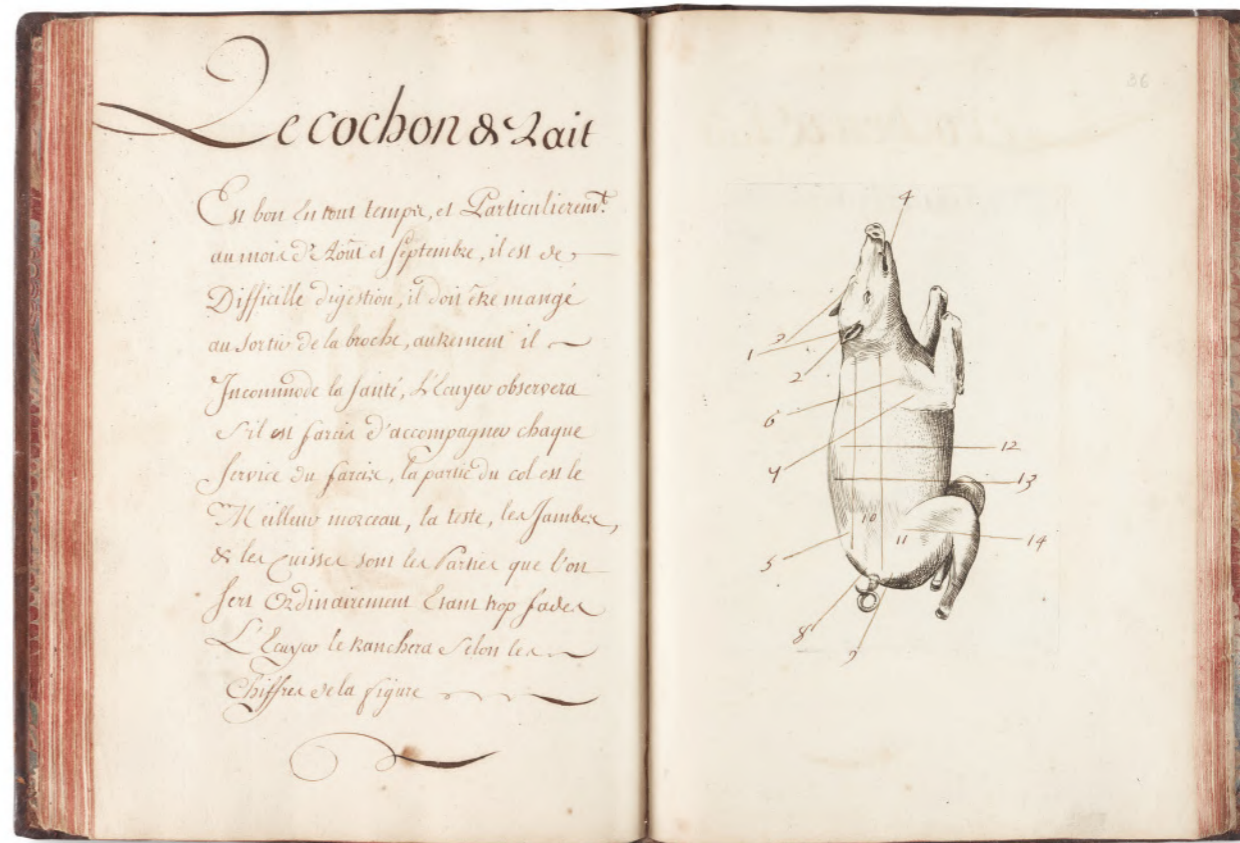 Le cochon de Lait
Est bon En tout temps, et Particulierem.t
au mois D'Aoüt et septembre, il est de
Difficille digestion, il doit être mangé
au sortir de la broche, autrement il
Incommode la santé, L'Ecuyer observera
s'il est farcis d'accompagner chaque
service du farcis, la partie du col est le
Meilleur morceau, la teste, les Jambes,
& les cuisses sont les Parties que l'on
sert Ordinairement Etant trop fades
L'Ecuyer le tranchera selon les
Chiffres de la figure
36
4
3
1
2
6
4
12
13
10
11
14
5
8
9